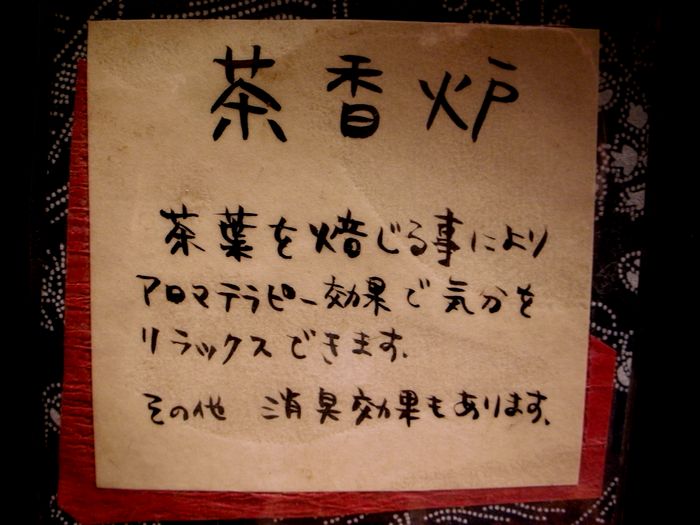 茶香炉
茶葉を焙じる事により
アロマテラピー効果で気分を
リラックスできます。
その他 消臭効果もあります。